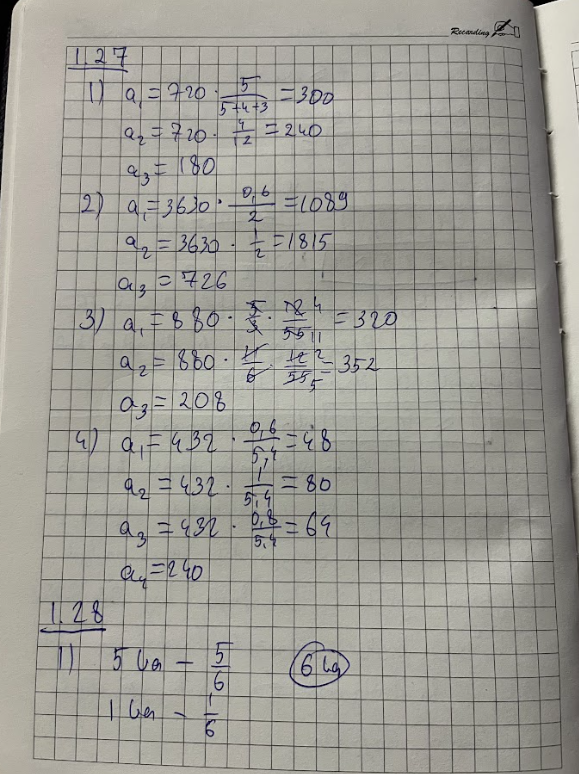 Recarding
1.27
1) a₁ = 720 · 5/(5+4+3) = 300
a₂ = 720 · 4/12 = 240
a₃ = 180
2) a₁ = 3630 · 0,6/2 = 1089
a₂ = 3630 · 1/2 = 1815
a₃ = 726
3) a₁ = 880 · 5/3 · 12/55 4 11 = 320
a₂ = 880 · 11/6 12/55 2 5 = 352
a₃ = 208
4) a₁ = 432 · 0,6/5,4 = 48
a₂ = 432 · 1/5,4 = 80
a₃ = 432 · 0,8/5,4 = 64
a₄ = 240
1.28
1) 5 – 5/6 6
1 – 1/6